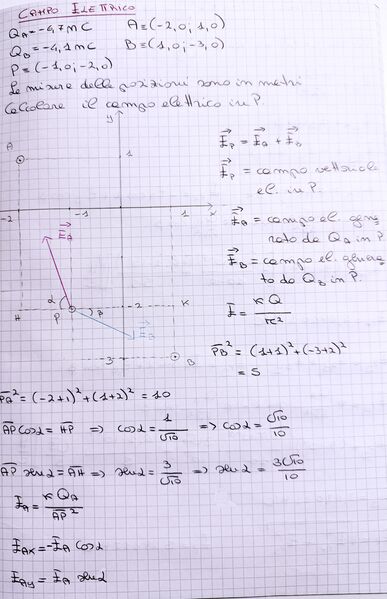 CAMPO ELETTRICO
Q_A = -4,7 nC   A ≡ (-2,0; 1,0)
Q_B = -4,1 nC   B ≡ (1,0; -3,0)
P ≡ (-1,0; -2,0)
Le misure delle posizioni sono in metri
Calcolare il campo elettrico in P
y
A
1
E_P = E_A + E_B
E_P = campo vettoriale
el. in P.
-2 -1 1 x
E_A = campo el. gene
rato da Q_A in P
E_A
E_B = campo el. genera
to da Q_B in P.
α
H P β -2 K
E = KQ / r²
E_B
-3 B
PB² = (1+1)² + (-3+2)²
= 5
PA² = (-2+1)² + (1+2)² = 10
AP cos α = HP ⇒ cos α = 1/√10 ⇒ cos α = √10/10
AP sen α = AH ⇒ sen α = 3/√10 ⇒ sen α = 3√10/10
E_A = K Q_A / AP²
E_Ax = -E_A cos α
E_Ay = E_A sen α